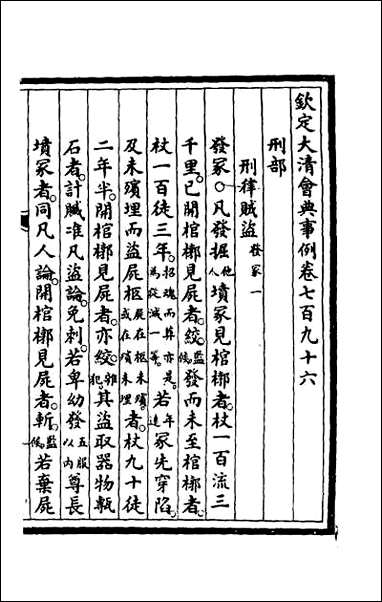 欽定大清會典事例卷七百九十六
刑部
刑律賊盜發冢一
發冢○凡發掘他人墳冢見棺槨者。杖一百流三
千里。已開棺槨見屍者。絞。監候。發而未至棺槨者。
杖一百徒三年。招魂而葬亦是。爲從減一等。若年遠冢先穿陷。
及未殯埋而盜屍柩屍在柩未殯。或在殯未埋者。杖九十徒
二年半。開棺槨見屍者。亦絞。雜犯。其盜取器物甎
石者。計贓准凡盜論。免刺。若卑幼發五服以內尊長
墳冢者。同凡人論。開棺槨見屍者。斬。監候。若棄屍